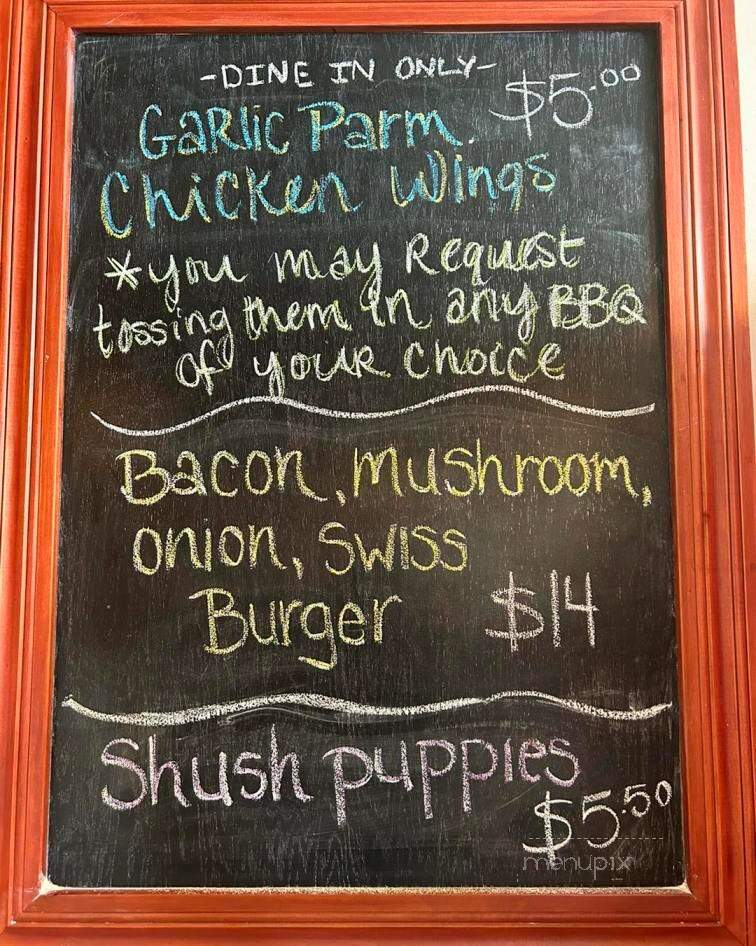 -DINE IN ONLY-
Garlic Parm. $5.00
Chicken Wings
*you may Request
tossing them in any BBQ
of your choice
Bacon, mushroom,
onion, Swiss
Burger $14
Shush puppies
$5.50
menupix